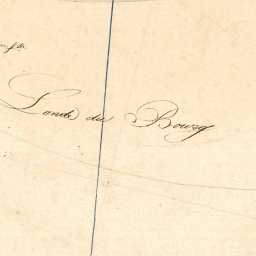 Lande du Bourg